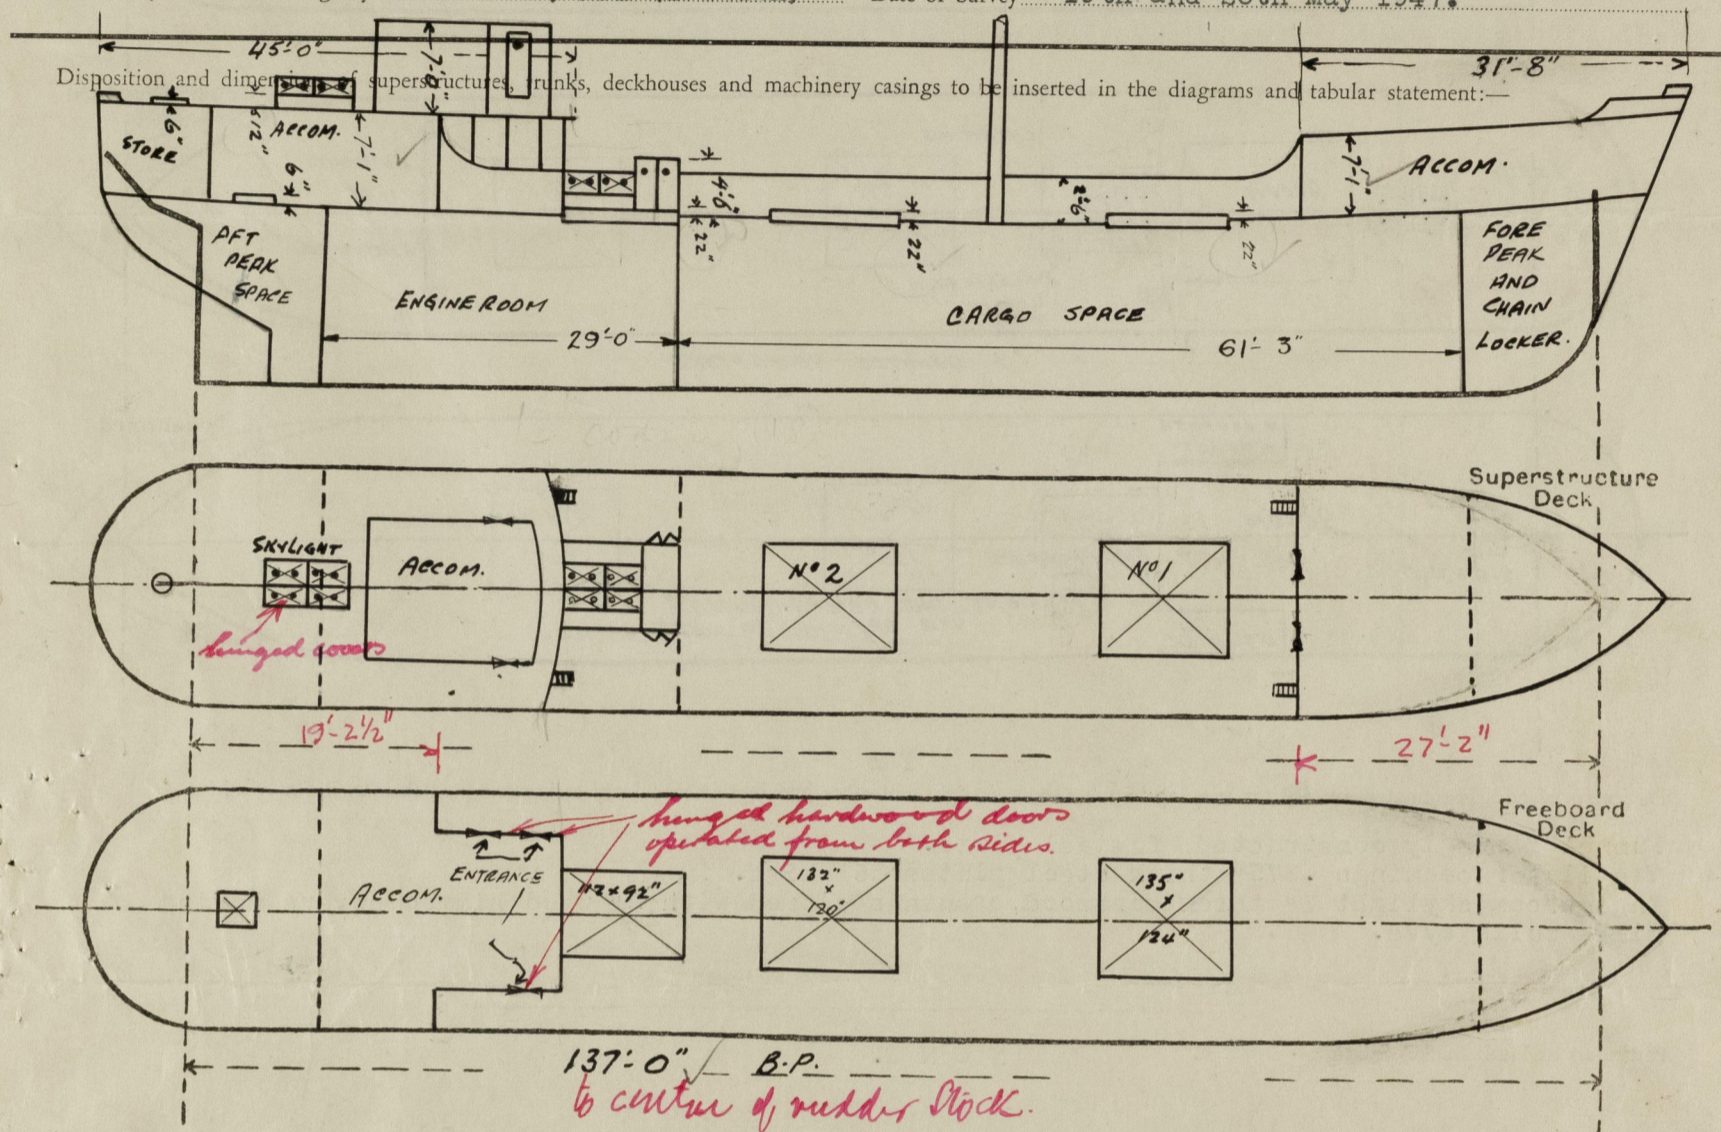 Date of Survey 28th May 1947.
45'-0"
7'-0"
31'-8"
Disposition and dimensions of superstructures, trunks, deckhouses and machinery casings to be inserted in the diagrams and tabular statement:—
6"
STORE
12"
ACCOM.
7'-1"
6"
4'-0"
22"
22"
2'-6"
22"
7'-1"
ACCOM.
AFT
PEAK
SPACE
ENGINE ROOM
29'-0"
CARGO SPACE
61'-3"
FORE
PEAK
AND
CHAIN
LOCKER.
Superstructure
Deck
SKYLIGHT
ACCOM.
No 2
No 1
hinged covers
19'-2½"
27'-2"
Freeboard
Deck
hinged hardwood doors
operated from both sides.
ENTRANCE
ACCOM.
x 92"
132"
x
120"
135"
x
124"
137'-0" B.P.
to centre of rudder Stock.